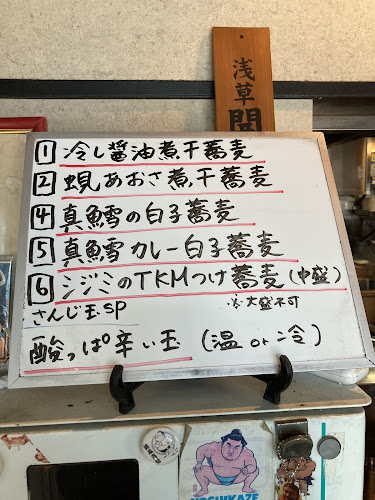 浅草
開
1 冷し醤油煮干蕎麦
2 蜆あおさ煮干蕎麦
4 真鱈の白子蕎麦
5 真鱈カレー白子蕎麦
6 シジミのTKMつけ蕎麦(中盛)
さんじ玉SP ※大盛不可
酸っぱ辛い玉 (温or冷)
YOSHIKAZE